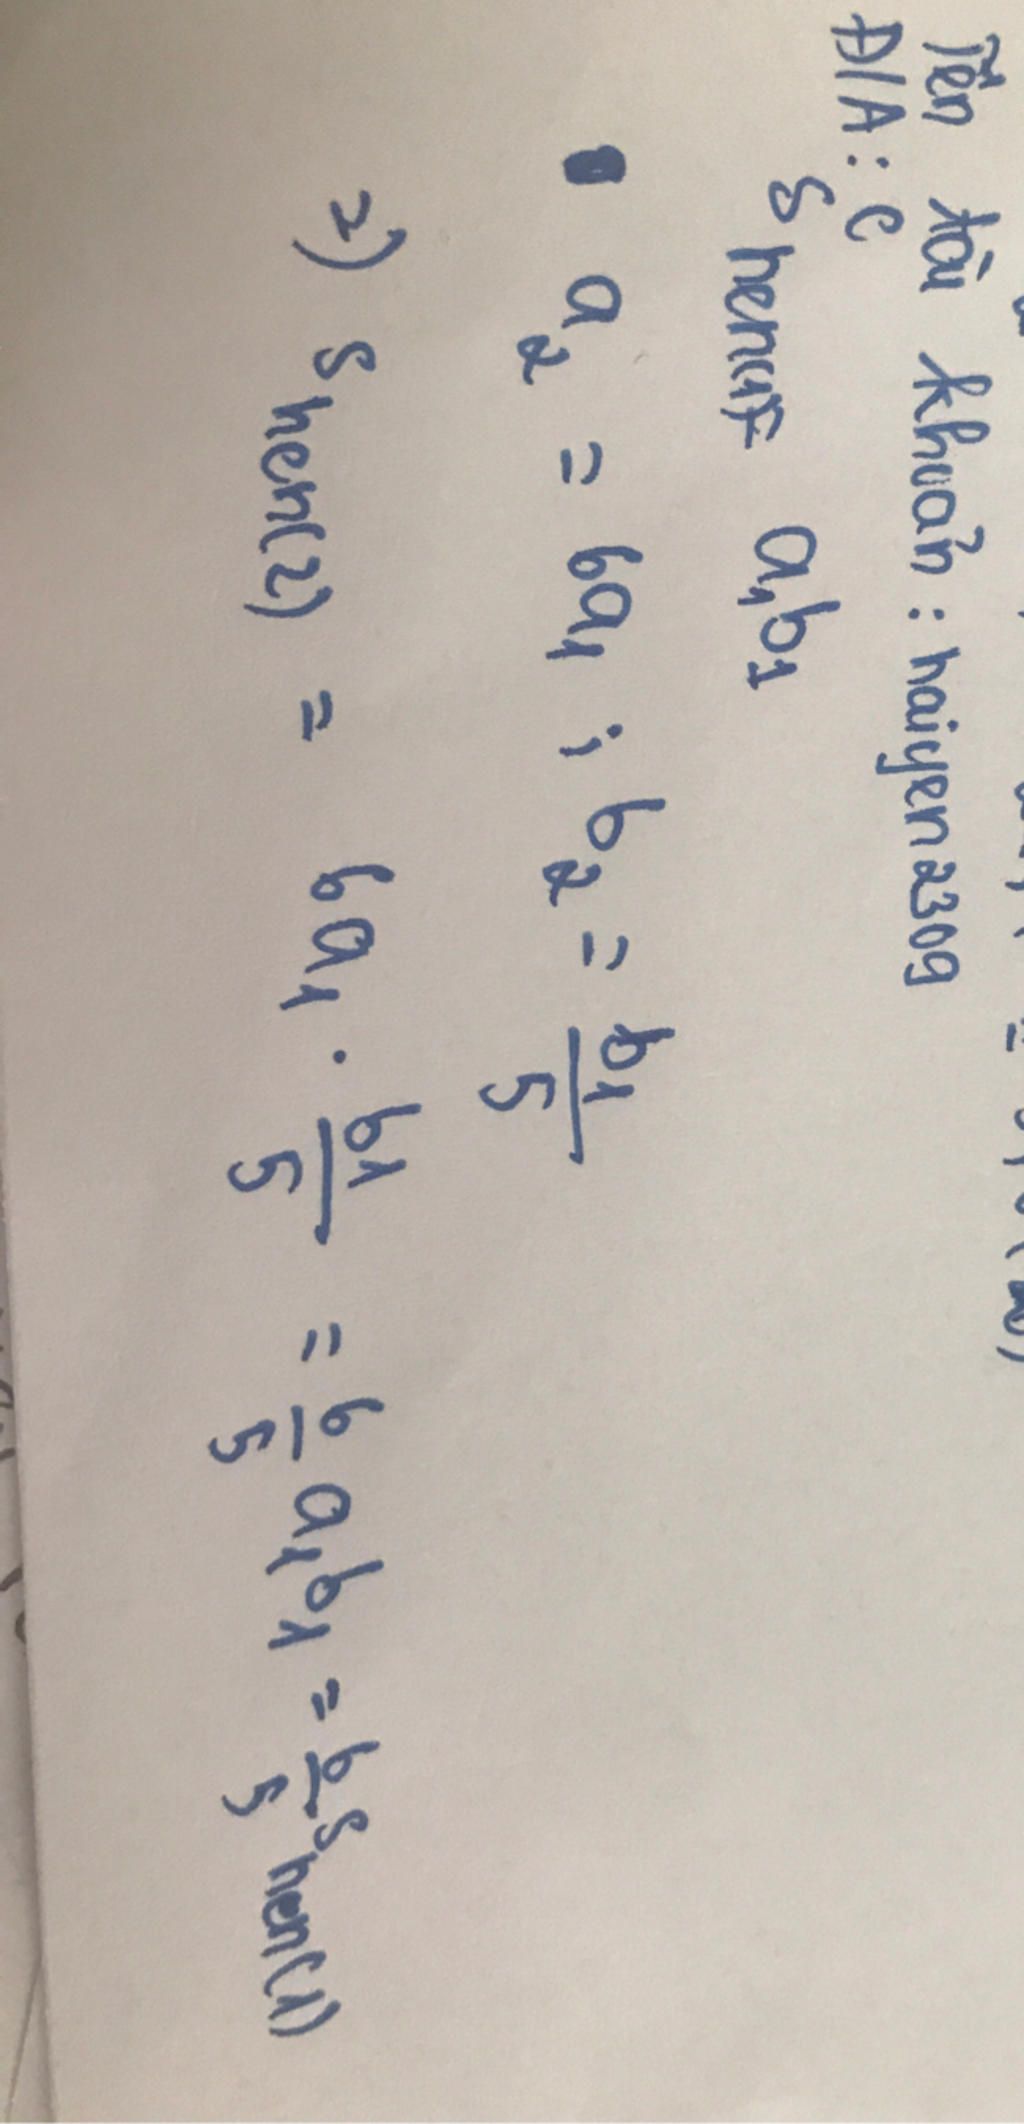 Tên tài khoản : haiyen2309
Đ/A : C
S hcn(1) = a₁b₁
a₂ = 6a₁ ; b₂ = b₁/5
=) S hcn(2) = 6a₁ . b₁/5 = 6/5 a₁b₁ = 6/5 S hcn(1)